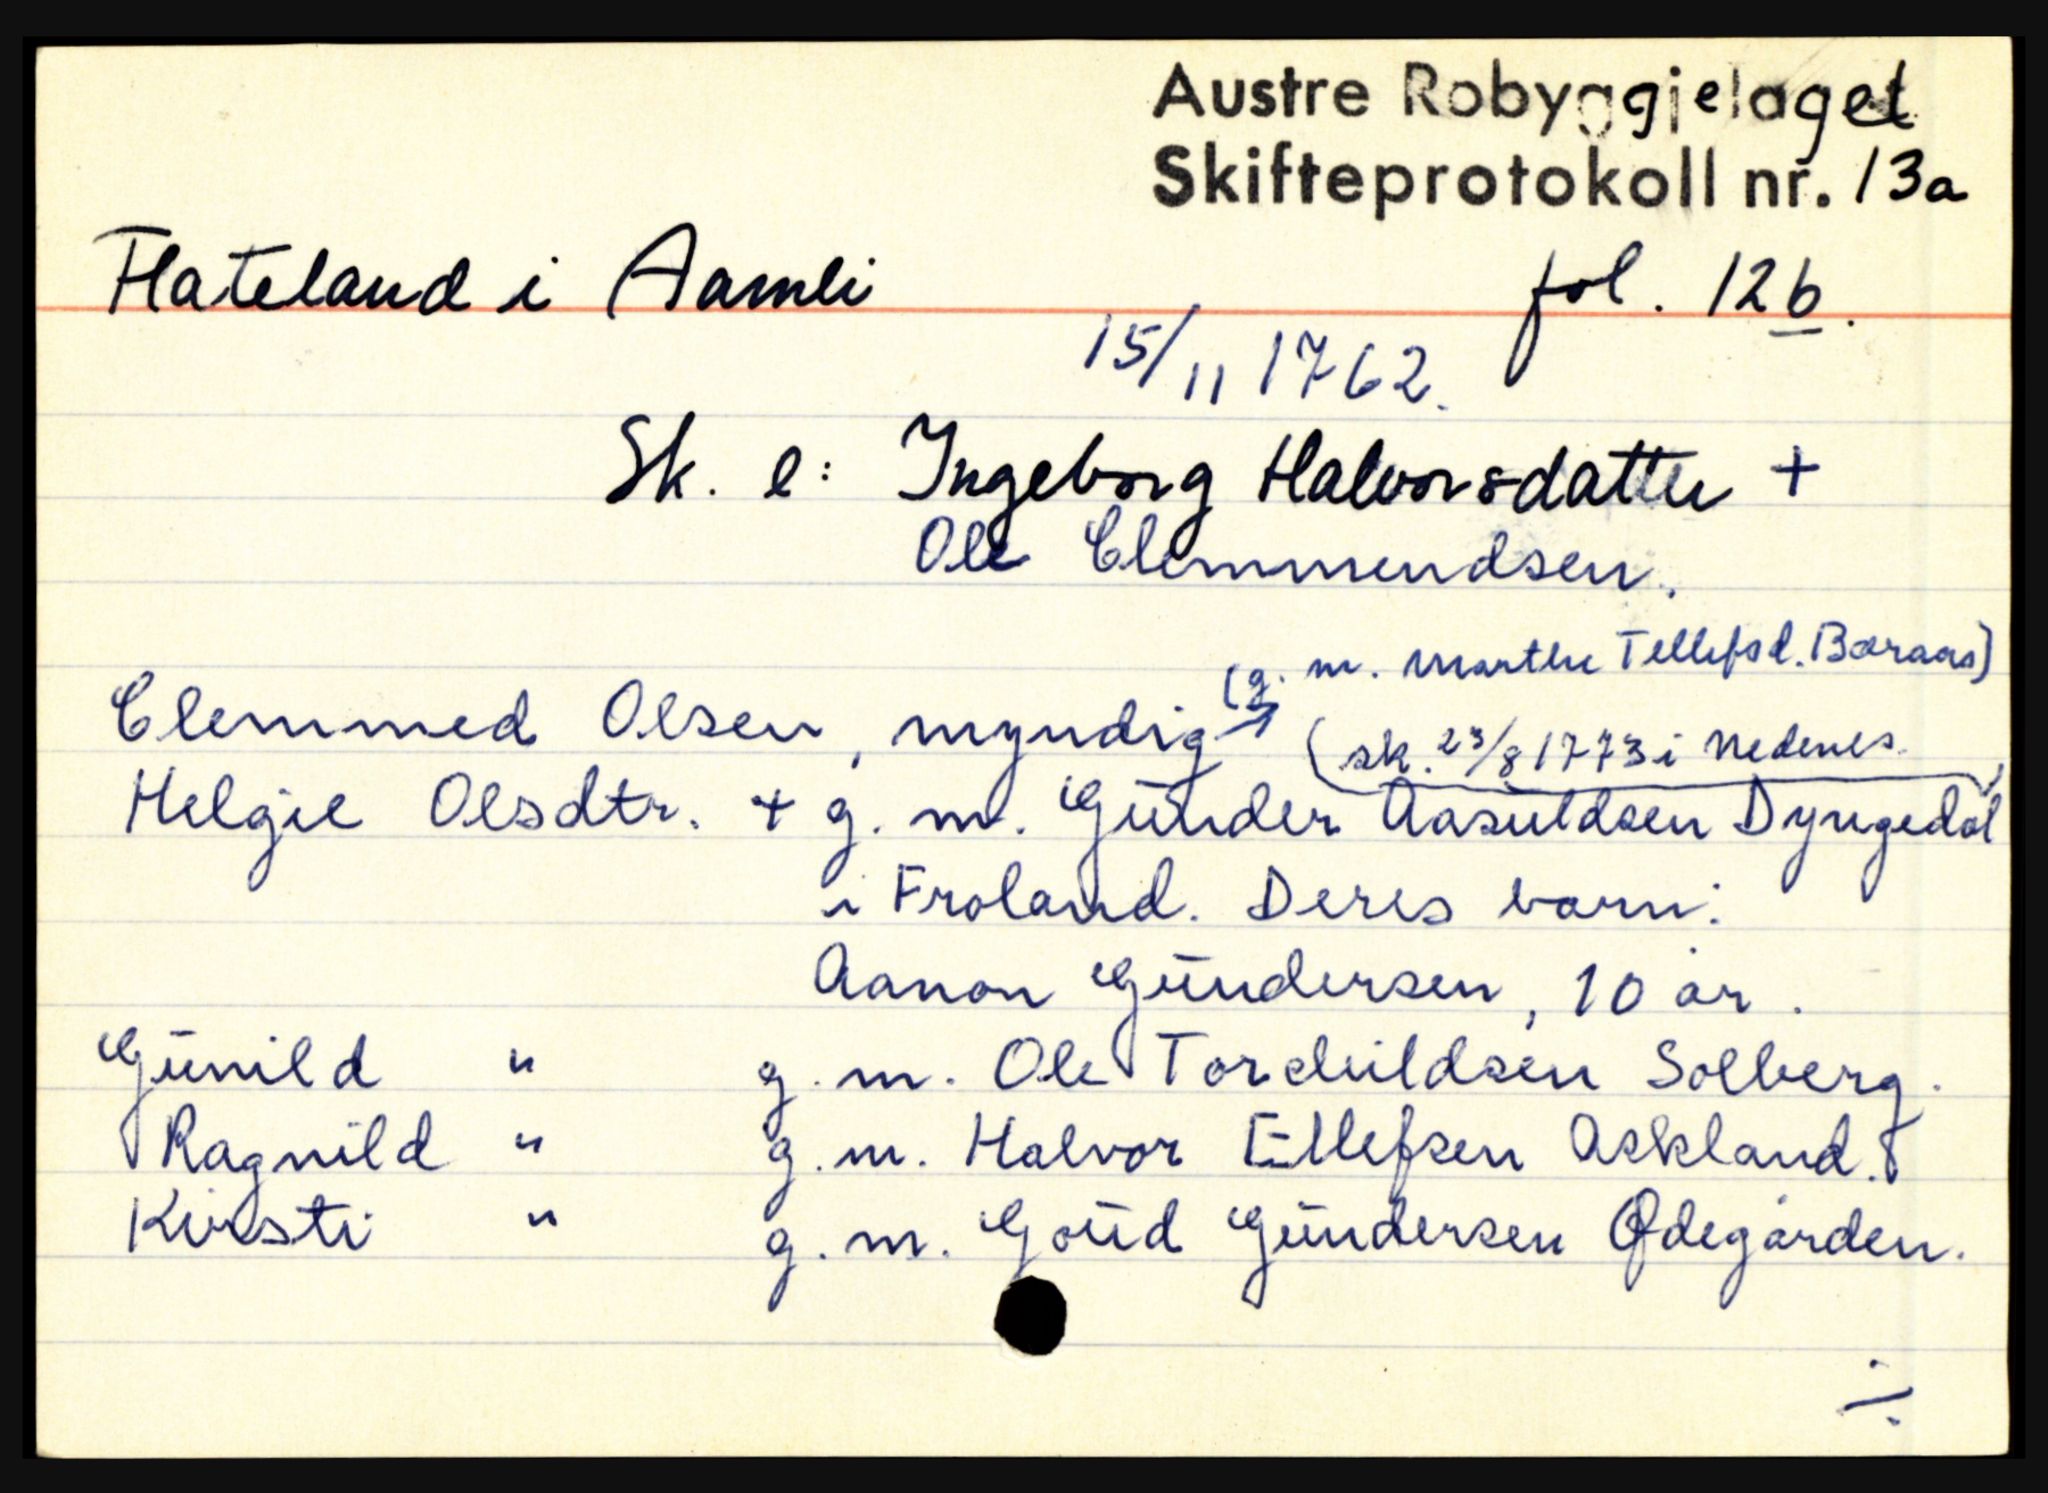 Austre Robyggjelaget
Skifteprotokoll nr. 13a
Flateland i Aamli fol. 12b.
15/11 1762.
Sk. e: Ingeborg Halvorsdatter +
Ole Clemmendsen.
(g. m. Marthe Tellefsd. Baraas)
Clemmed Olsen, myndig
(sk. 23/8 1773 i Nedenes.)
Helgie Olsdtr. + g. m. Gunder Aasuldsen Dyngedal
i Froland. Deres barn:
Aanon Gundersen, 10 år.
Gunild " g. m. Ole Torchildsen Solberg.
Ragnild " g. m. Halvor Ellefsen Askland.
Kirsti " g. m. Goud Gundersen Ødegården.
./.